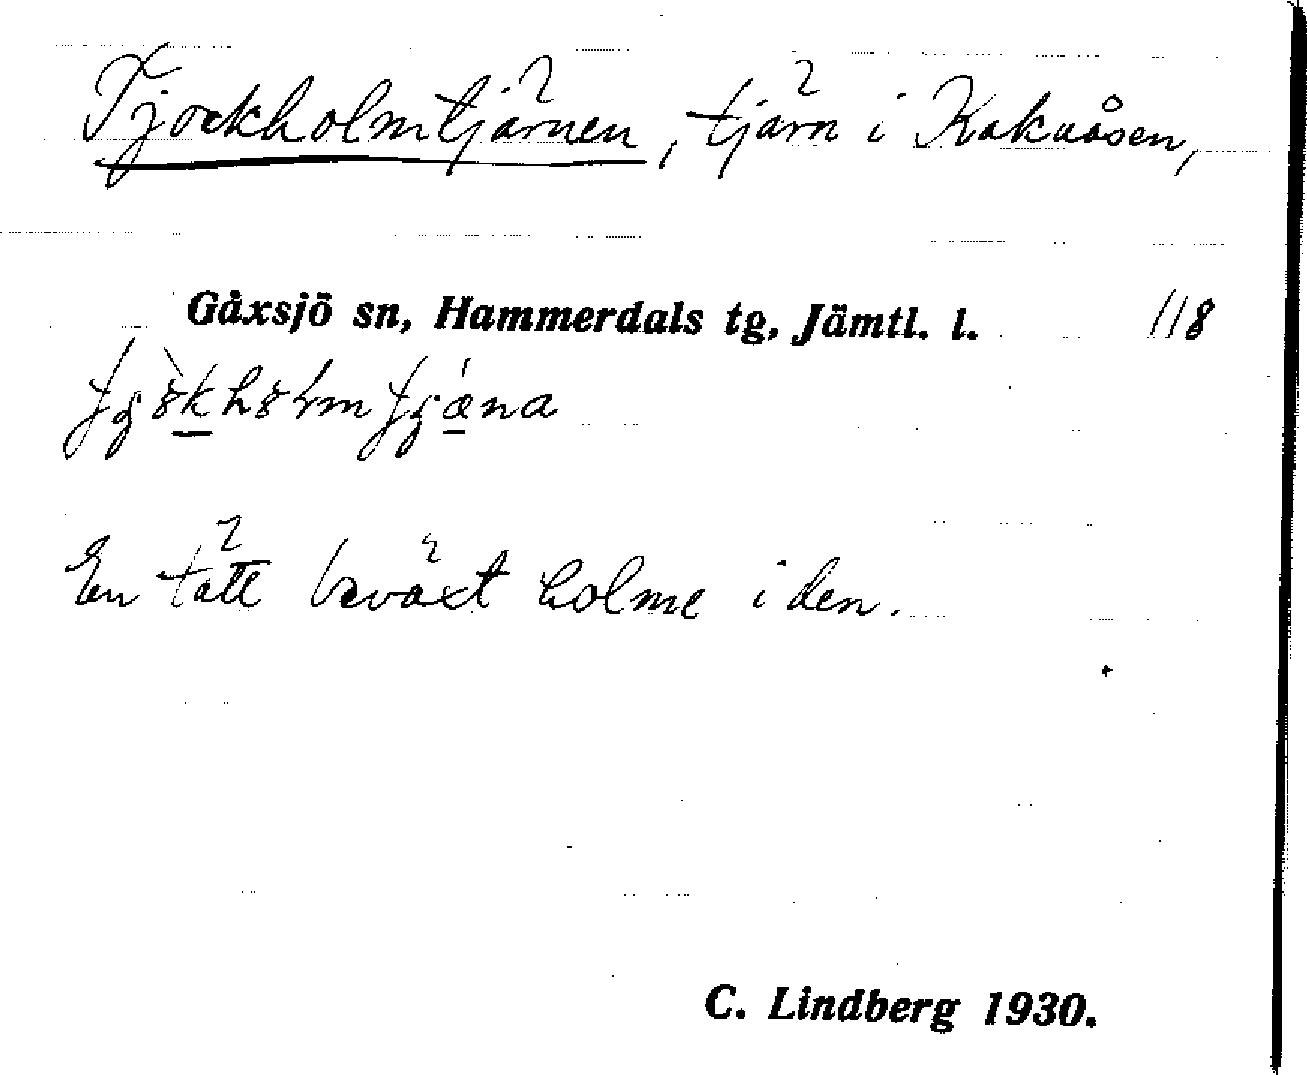 Tjockholmtjärnen, tjärn i Kakuåsen,
Gåxsjö sn, Hammerdals tg, Jämtl. l. 118
En tätt beväxt holme i den.
C. Lindberg 1930.